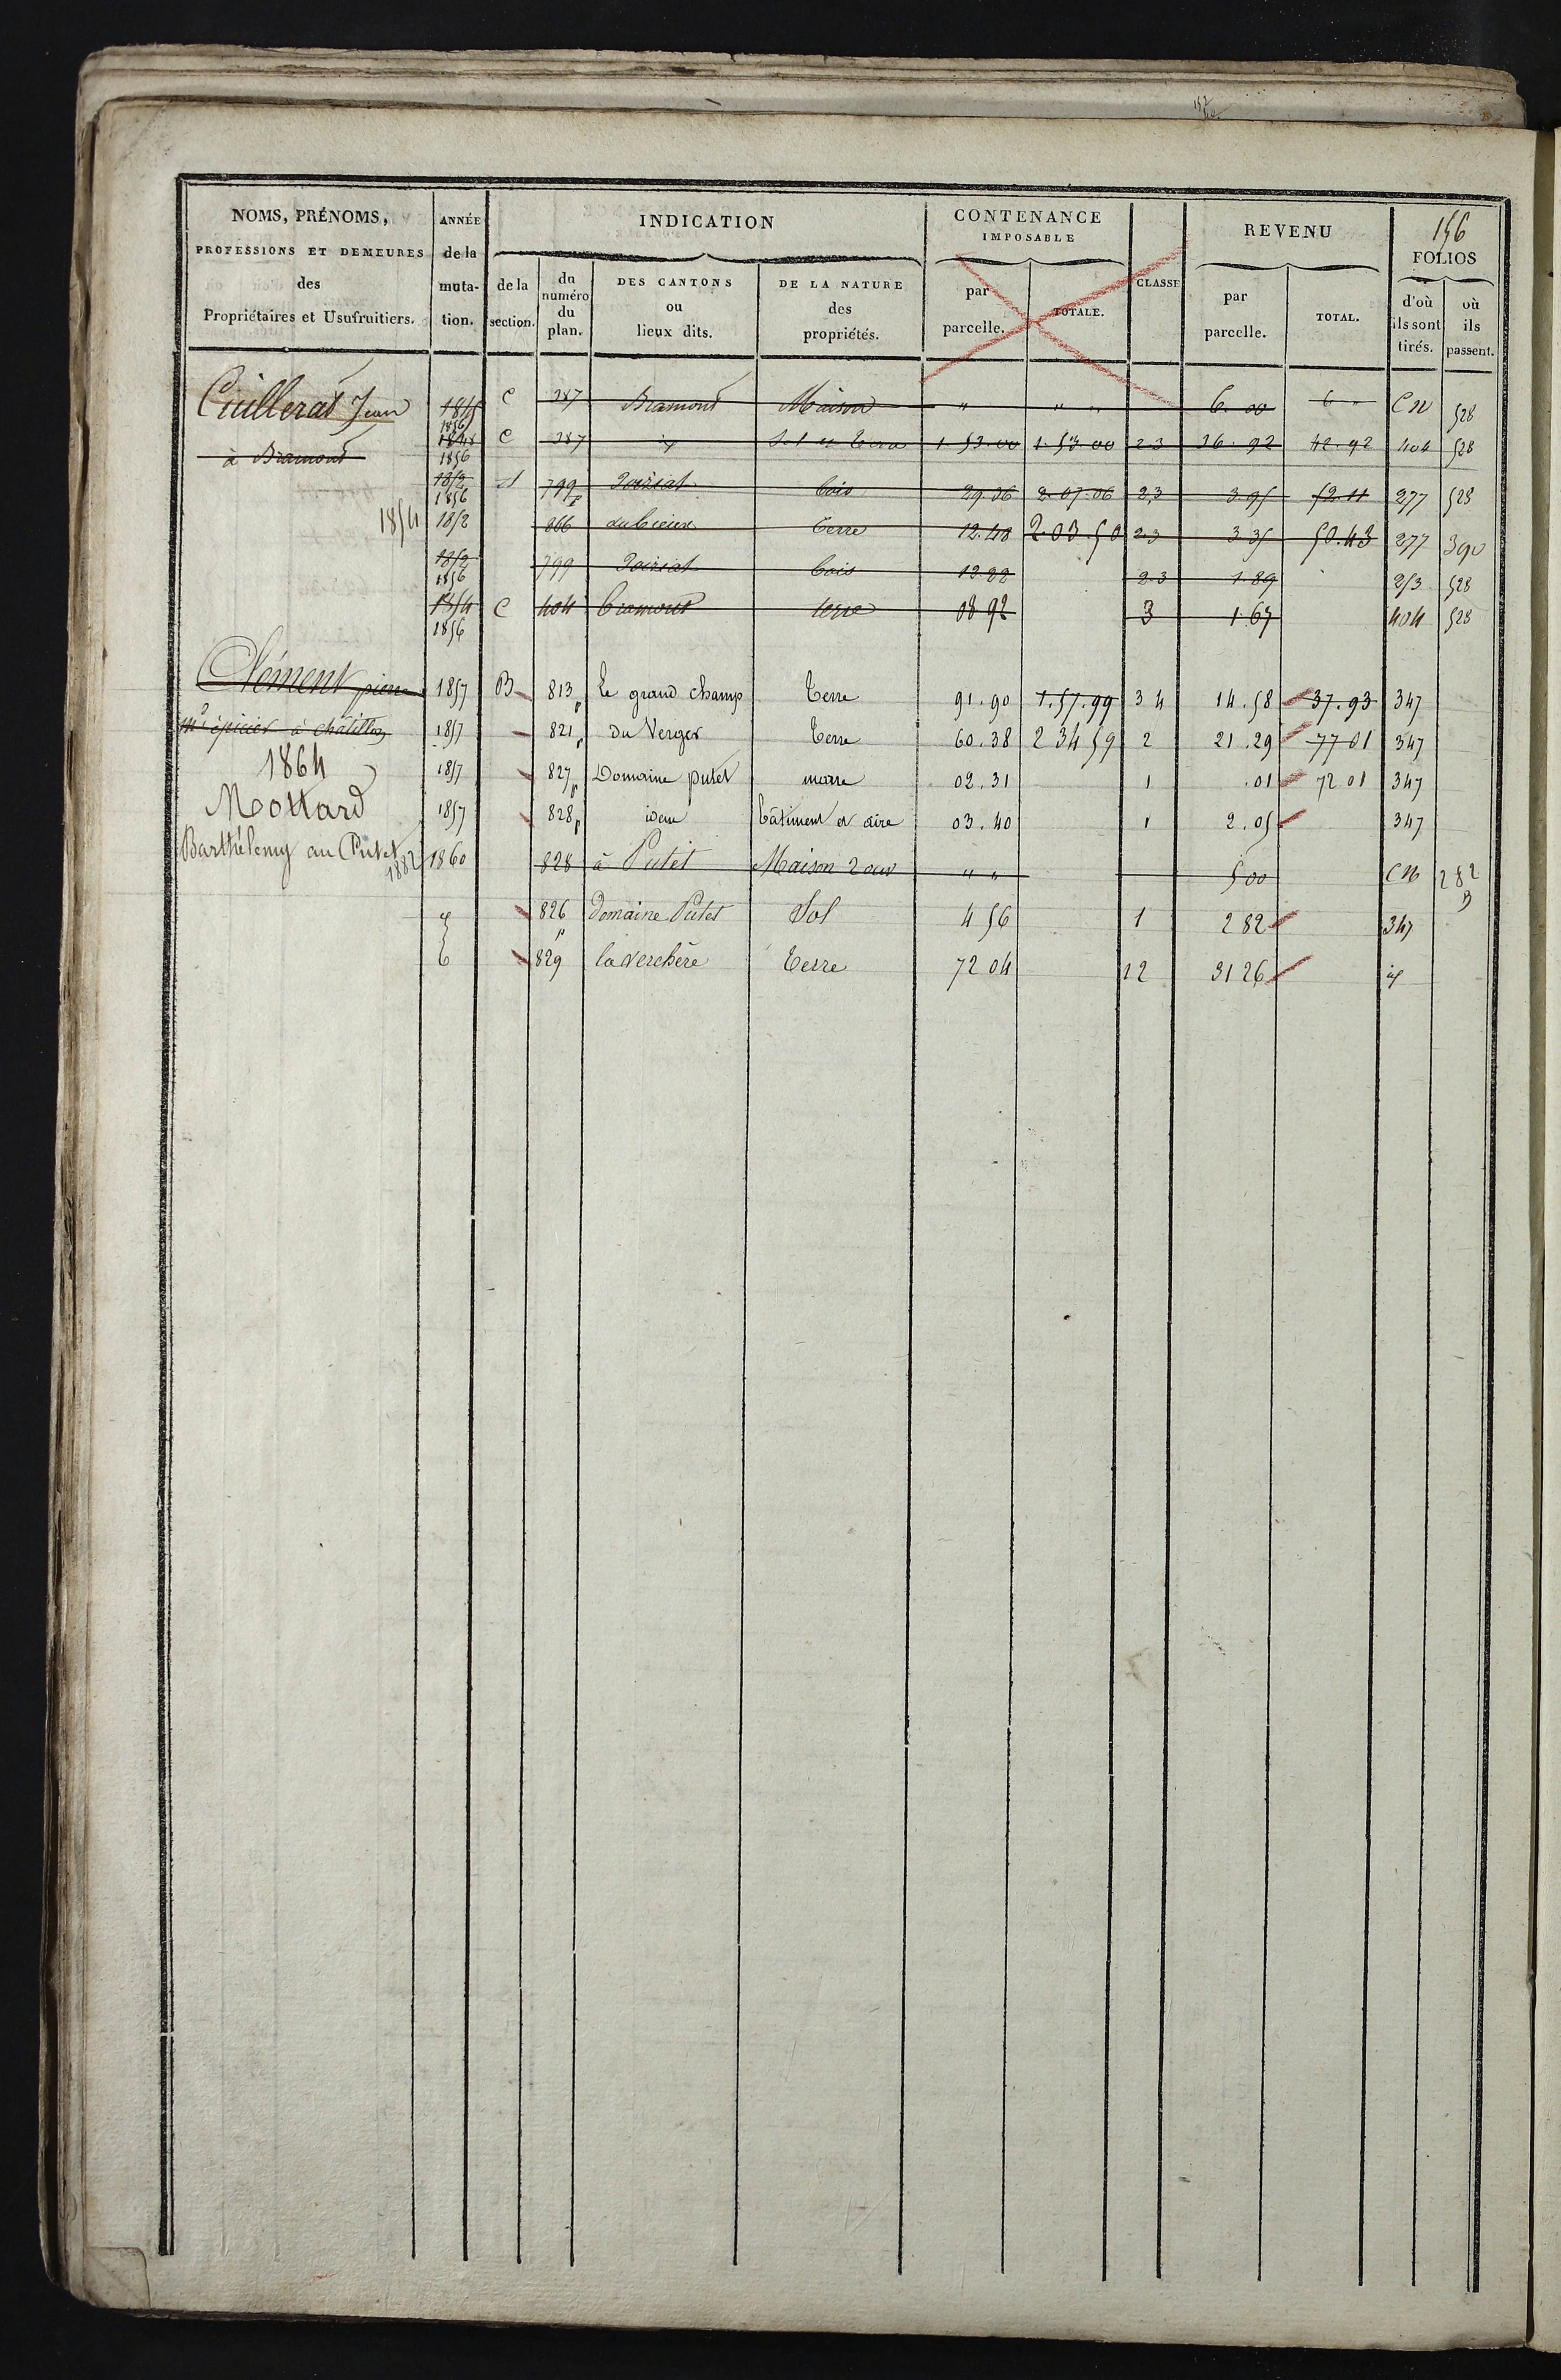 156
NOMS, PRÉNOMS, PROFESSIONS ET DEMEURES des Propriétaires et Usufruitiers.
ANNÉE de la muta- tion.
INDICATION
de la section.
du numéro du plan.
DES CANTONS ou lieux dits.
DE LA NATURE des propriétés.
CONTENANCE IMPOSABLE
par parcelle.
TOTALE.
CLASSE
REVENU
par parcelle.
TOTAL.
FOLIOS
d'où ils sont tirés.
où ils passent.
Cuillerat Jean 1856 C 387 Bramont Maison " " " 6.00 6 " CN 528
à Bramont 1848 1856 C 387 Sol et Terre 1.53.00 1.53.00 2 3 36.92 42.92 404 528
1852 1856 799 p bois 29.36 2.07.06 2 3 3.95 52.11 277 528
1854 1852 866 terre 12.48 2.03.50 2 3 3 35 50.43 277 390
1852 1856 799 bois 13 22 2 3 1.89 253 528
1854 1856 C 404 bramont terre 08 92 3 1.67 404 528
Clément pierre 1857 B 813 p Le grand champ Terre 91.90 1.57.99 3 4 14.58 37.93 347
md épicier à châtillon 1857 821 p du Verger Terre 60.38 2 34 59 2 21.29 77 01 347
1864 1857 827 p Domaine putet marre 02.31 1 .01 72 01 347
Mottard 1857 828 p idem bâtiment et aire 03.40 1 2.05 347
Barthélemy au Putet 1882 1860 828 à Putet Maison 2 ouv " " 5 00 CN 282
826 p domaine Putet Sol 4 56 1 2 82 347
829 la verchère Terre 72 04 12 31 26 id